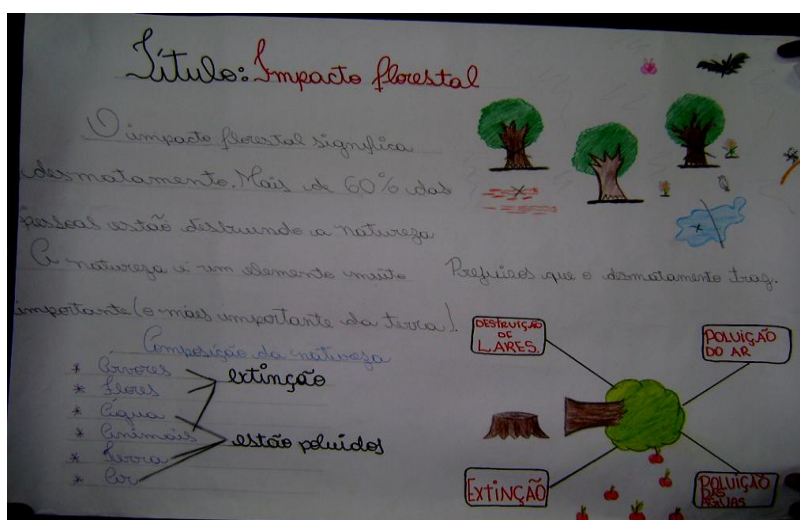 Título: Impacto florestal
O impacto florestal significa
desmatamento. Mais de 60% das
pessoas estão destruindo a natureza
A natureza é um elemento muito
importante (o mais importante da terra).
Composição da natureza
* Árvores
* Flores
* Água
* Animais
* Terra
* Ar
extinção
estão poluídos
Prejuizos que o desmatamento traz.
DESTRUIÇÃO
DE
LARES.
POLUIÇÃO
DO AR
EXTINÇÃO
POLUIÇÃO
DAS
ÁGUAS